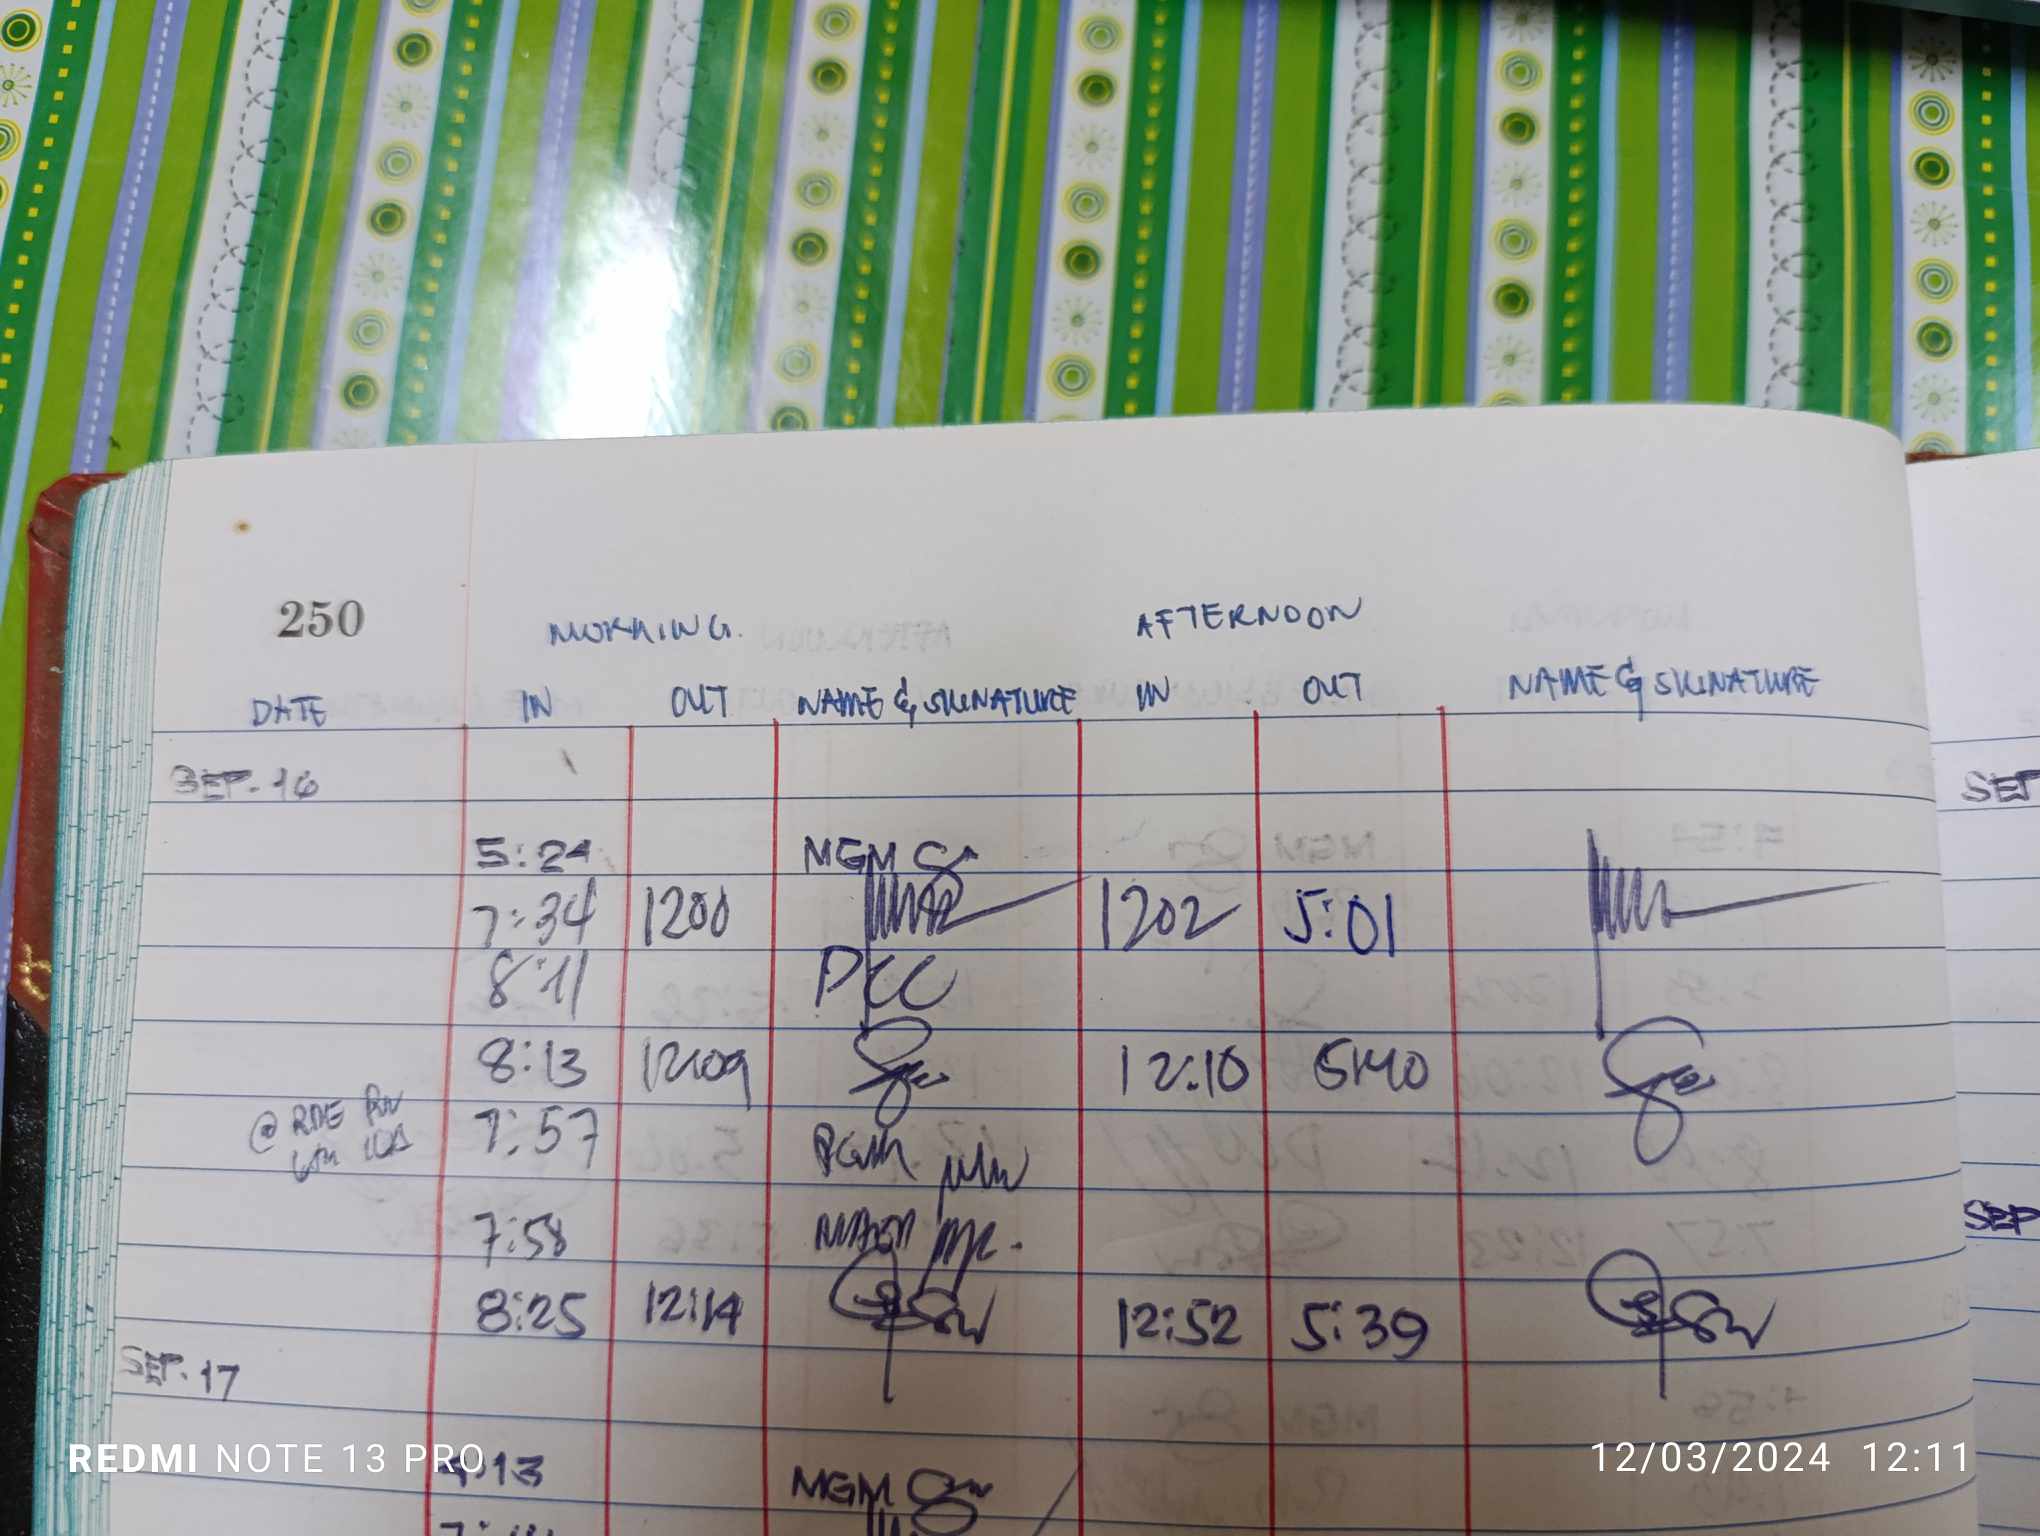 250 MORNING. AFTERNOON
DATE IN OUT NAME & SIGNATURE IN OUT NAME & SIGNATURE
SEP. 16
5:24 MGM
7:34 1200 1202 5:01
8:11 PCC
8:13 12:09 12:10 5:40
@ RDE 7:57
7:58
8:25 12:14 12:52 5:39
SEP. 17
:13 MGM
SEP
SEP
REDMI NOTE 13 PRO 12/03/2024 12:11